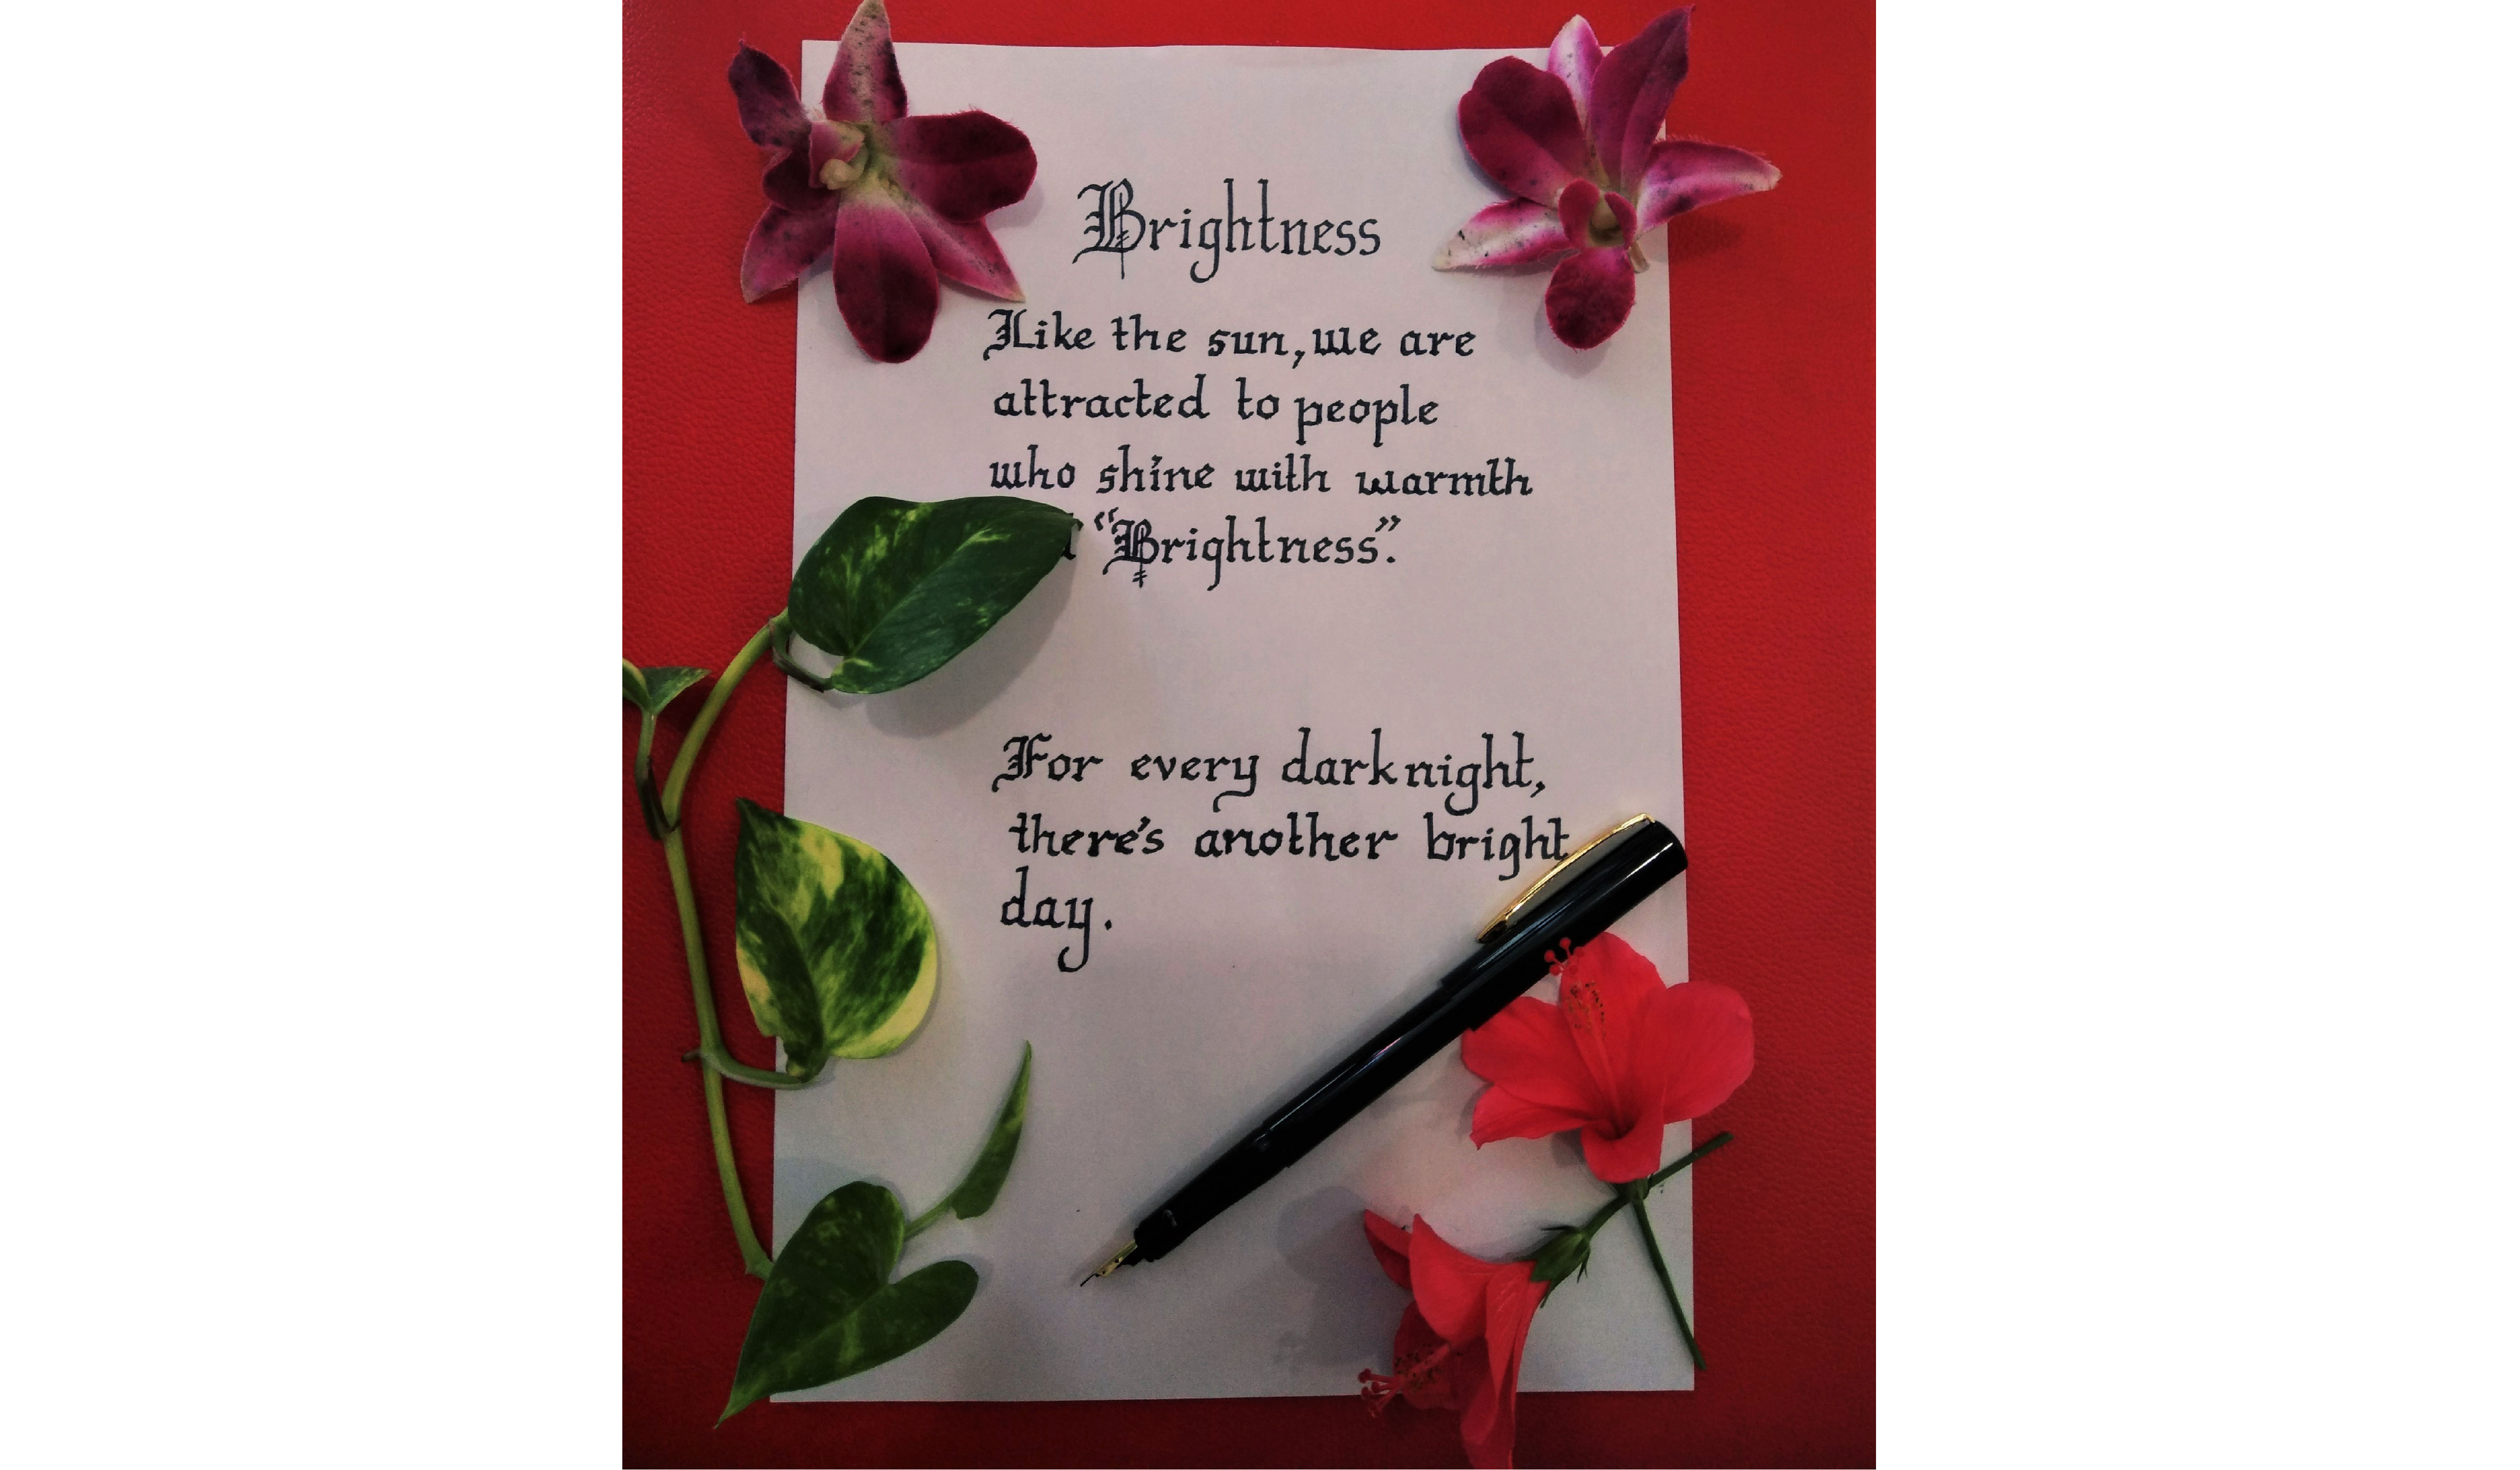 Brightness
Like the sun, we are
attracted to people
who shine with warmth
"Brightness".
For every dark night,
there's another bright
day.